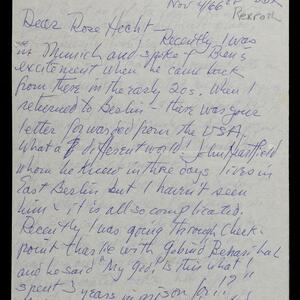 Nov 4/66
Rexroth
Dear Rose Hecht –
Recently I was
in Munich and spoke of Ben's
excitement when he came back
from there in the early 20s. When I
returned to Berlin – there was your
letter forwarded from the USA.
What a different world! John Heartfield
whom he knew in these days lives in
East Berlin but I haven't seen
him – it is all so complicated.
Recently I was going through Check-
point Charlie with Gobind Behari Lal
and he said "My god, is this what I
spent 3 years in prison for!!?"